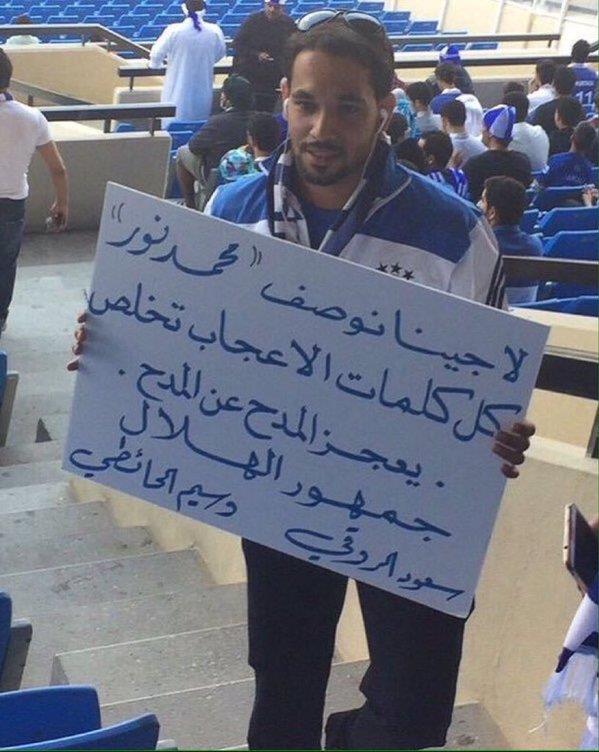 لا جينا نوصف "محمد نور"
كل كلمات الاعجاب تخلص
. يعجز المدح عن المدح .
جمهور الهلال
سعود الروقي وسيم الحائطي